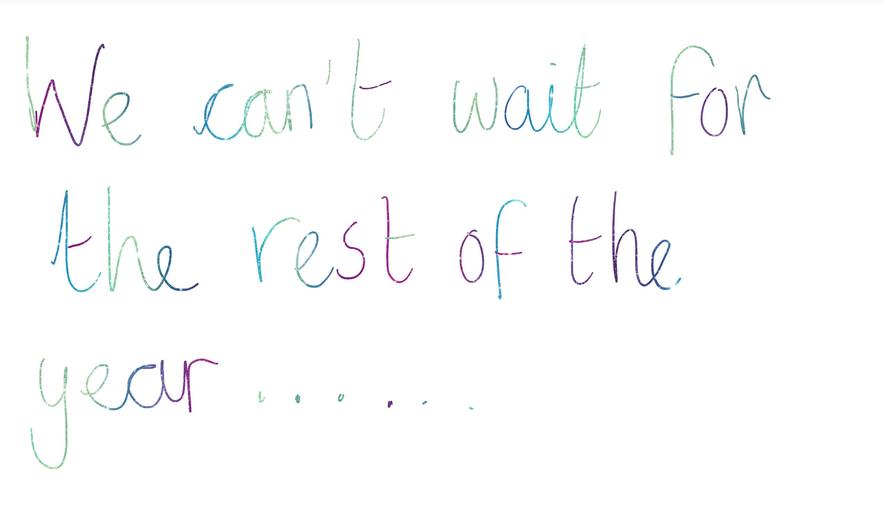 We can't wait for
the rest of the
year ......